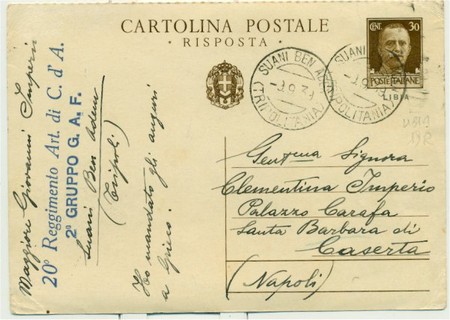 CARTOLINA POSTALE
RISPOSTA
CENT. 30
POSTE ITALIANE
LIBIA
SUANI BEN ADEM
(TRIPOLITANIA)
SUANI BEN ADEM
(TRIPOLITANIA)
Gent.ma Signora
Clementina Imperio
Palazzo Carafa
Santa Barbara di
Caserta
(Napoli)
Maggiore Giovanni Imperio
20° Reggimento Art. di C. d'A.
2° GRUPPO G. A. F.
Suani Ben Adem
(Tripoli)
Ho mandato gli auguri
a Greco.